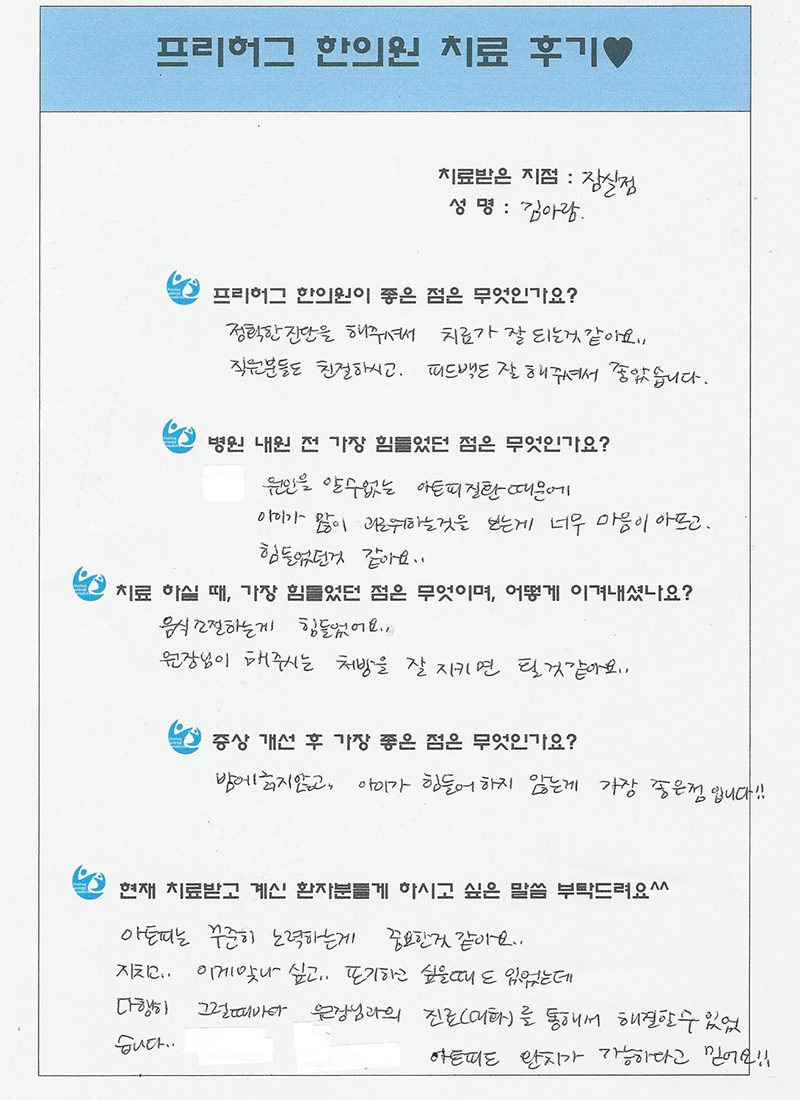 프리허그 한의원 치료 후기♥
치료받은 지점 : 잠실점
성 명 : 김아람.
프리허그 한의원이 좋은 점은 무엇인가요?
정확한 진단을 해주셔서 치료가 잘 되는것 같아요..
직원분들도 친절하시고. 피드백도 잘 해주셔서 좋았습니다.
병원 내원 전 가장 힘들었던 점은 무엇인가요?
원인을 알수없는 아토피질환 때문에
아이가 많이 괴로워하는것을 보는게 너무 마음이 아프고.
힘들었던것 같아요..
치료 하실 때, 가장 힘들었던 점은 무엇이며, 어떻게 이겨내셨나요?
음식조절하는게 힘들었어요..
원장님이 해주시는 처방을 잘 지키면 될것같아요..
증상 개선 후 가장 좋은 점은 무엇인가요?
밤에 긁지않고, 아이가 힘들어 하지 않는게 가장 좋은점 입니다!!
현재 치료받고 계신 환자분들게 하시고 싶은 말씀 부탁드려요^^
아토피는 꾸준히 노력하는게 중요한것 같아요..
지치고.. 이게맞나 싶고.. 포기하고 싶을때도 있었는데
다행히 그럴때마다 원장님과의 진료(대화)를 통해서 해결할수 있었
습니다..
아토피도 완치가 가능하다고 믿어요!!